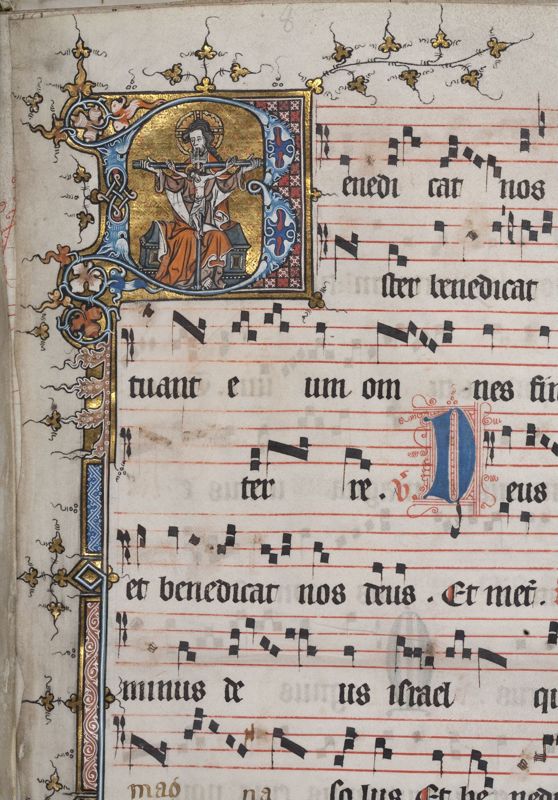 Benedi cat nos
ster benedicat
tuant e um om nes fin
ter re. V. Deus
et benedicat nos deus. Et met.
minus de us israel qu
maō na so lus Et be nedi